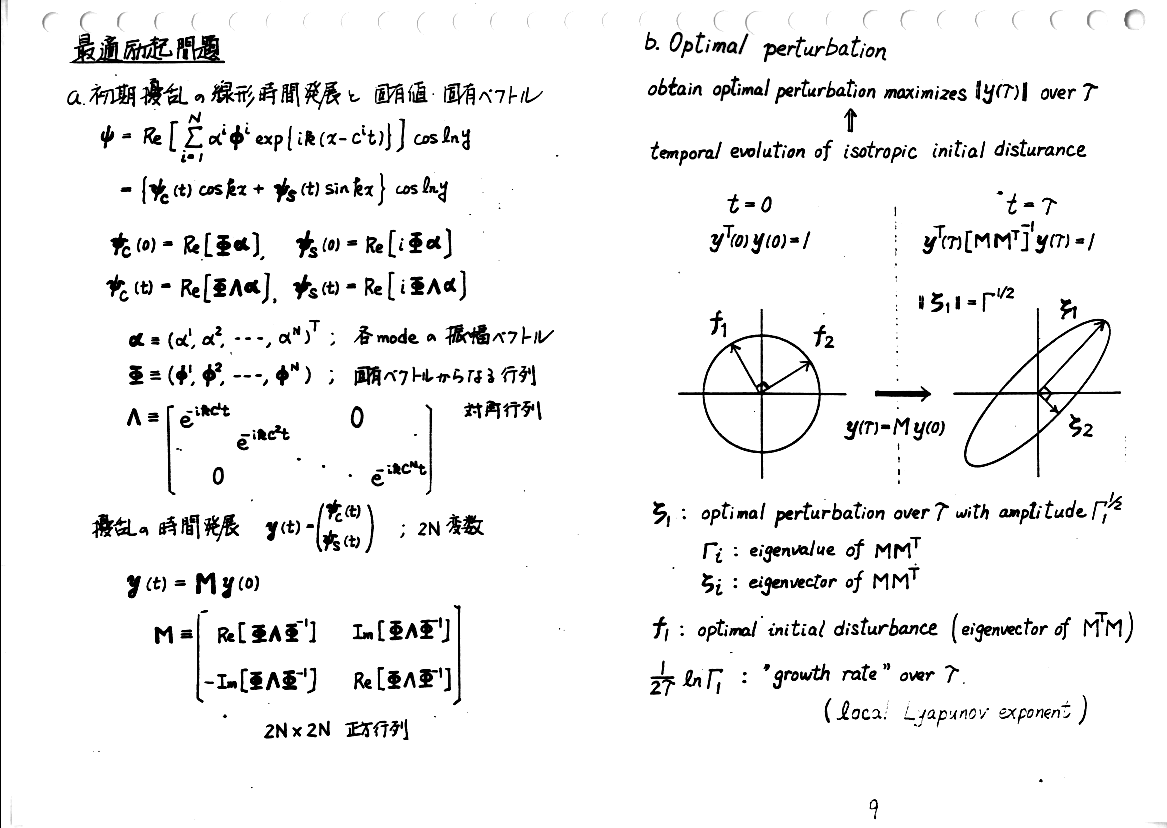 最適励起問題
a. 初期擾乱の線形時間発展と 固有値・固有ベクトル
ψ = Re[ Σ_{i=1}^{N} α^i ϕ^i exp{ik(x-c^i t)} ] cos lny
= {ψ_c(t) cos kx + ψ_s(t) sin kx} cos lny
ψ_c(0) = Re[Φα], ψ_s(0) = Re[iΦα]
ψ_c(t) = Re[ΦΛα], ψ_s(t) = Re[iΦΛα]
α ≡ (α^1, α^2, ---, α^N)^T ; 各modeの振幅ベクトル
Φ ≡ (ϕ^1, ϕ^2, ---, ϕ^N) ; 固有ベクトルからなる行列
Λ ≡ [ e^{-ikc^1t} 0 対角行列
e^{-ikc^2t}
0 . . e^{-ikc^Nt} ]
擾乱の時間発展 y(t) = (ψ_c(t) ψ_s(t)) ; 2N変数
y(t) = M y(0)
M ≡ [ Re[ΦΛΦ^{-1}] Im[ΦΛΦ^{-1}]
-Im[ΦΛΦ^{-1}] Re[ΦΛΦ^{-1}] ]
2N × 2N 正方行列
b. Optimal perturbation
obtain optimal perturbation maximizes |y(τ)| over τ
⇑
temporal evolution of isotropic initial disturance
t = 0
y^T(0) y(0) = 1
t = τ
y^T(τ)[MM^T]^{-1} y(τ) = 1
‖ξ_1‖ = Γ^{1/2}
f_1
f_2
y(τ) = M y(0)
ξ_1
ξ_2
ξ_1 : optimal perturbation over τ with amplitude Γ_1^{1/2}
Γ_i : eigenvalue of MM^T
ξ_i : eigenvector of MM^T
f_1 : optimal initial disturbance (eigenvector of M^TM)
1/2τ ln Γ_1 : "growth rate" over τ.
(local Lyapunov exponent)
9